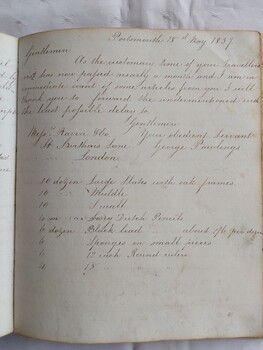 Portsmouth 18th May 1837
Gentlemen
As the customary time of your Travellers
visit has now passed nearly a month and I am in
immediate want of some articles from you I will
thank you to forward the undermentioned with
the least possible delay &
Gentlemen
Your obedient Servant
St Lane George Rawlings
London
10 dozen Large Slates with oak frames
10 Middle
10 Small
Dutch Pencils
6 dozen Black lead about 1/6 per dozen
6 Sponges in small pieces
6 12 inch Round rulers
18